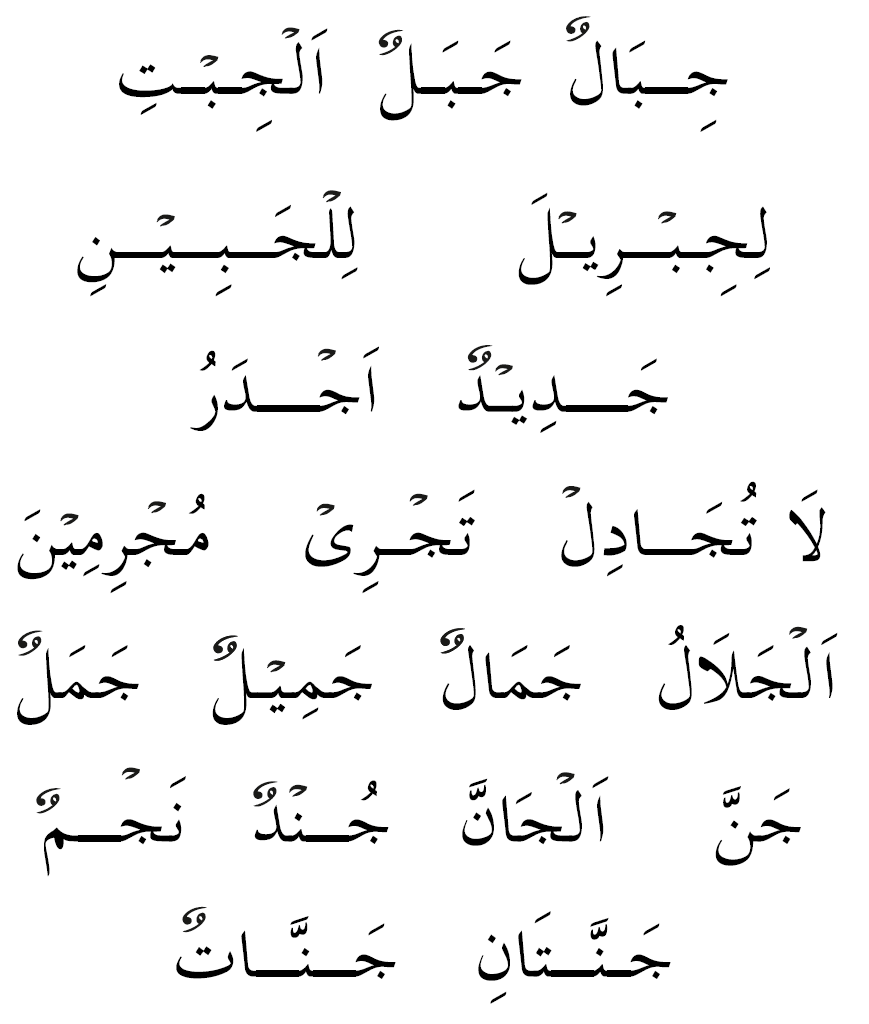 جِـبَالٌ جَـبَـلٌ اَلْجِـبْـتِ
لِجِـبْـرِيْلَ لِلْجَـبِـيْـنِ
جَـدِيْدٌ اَجْـدَرُ
لَا تُجَـادِلْ تَجْـرِىْ مُجْرِمِيْنَ
اَلْجَلَالُ جَمَالٌ جَمِيْلٌ جَمَلٌ
جَنَّ اَلْجَانَّ جُـنْدٌ نَجْـمٌ
جَـنَّـتَانِ جَـنَّـاتٌ